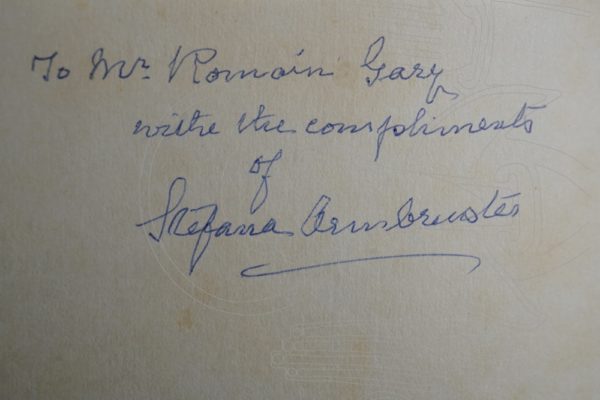 To Mr. Romain Gary
withe the compliments
of
Stefana Armbruster